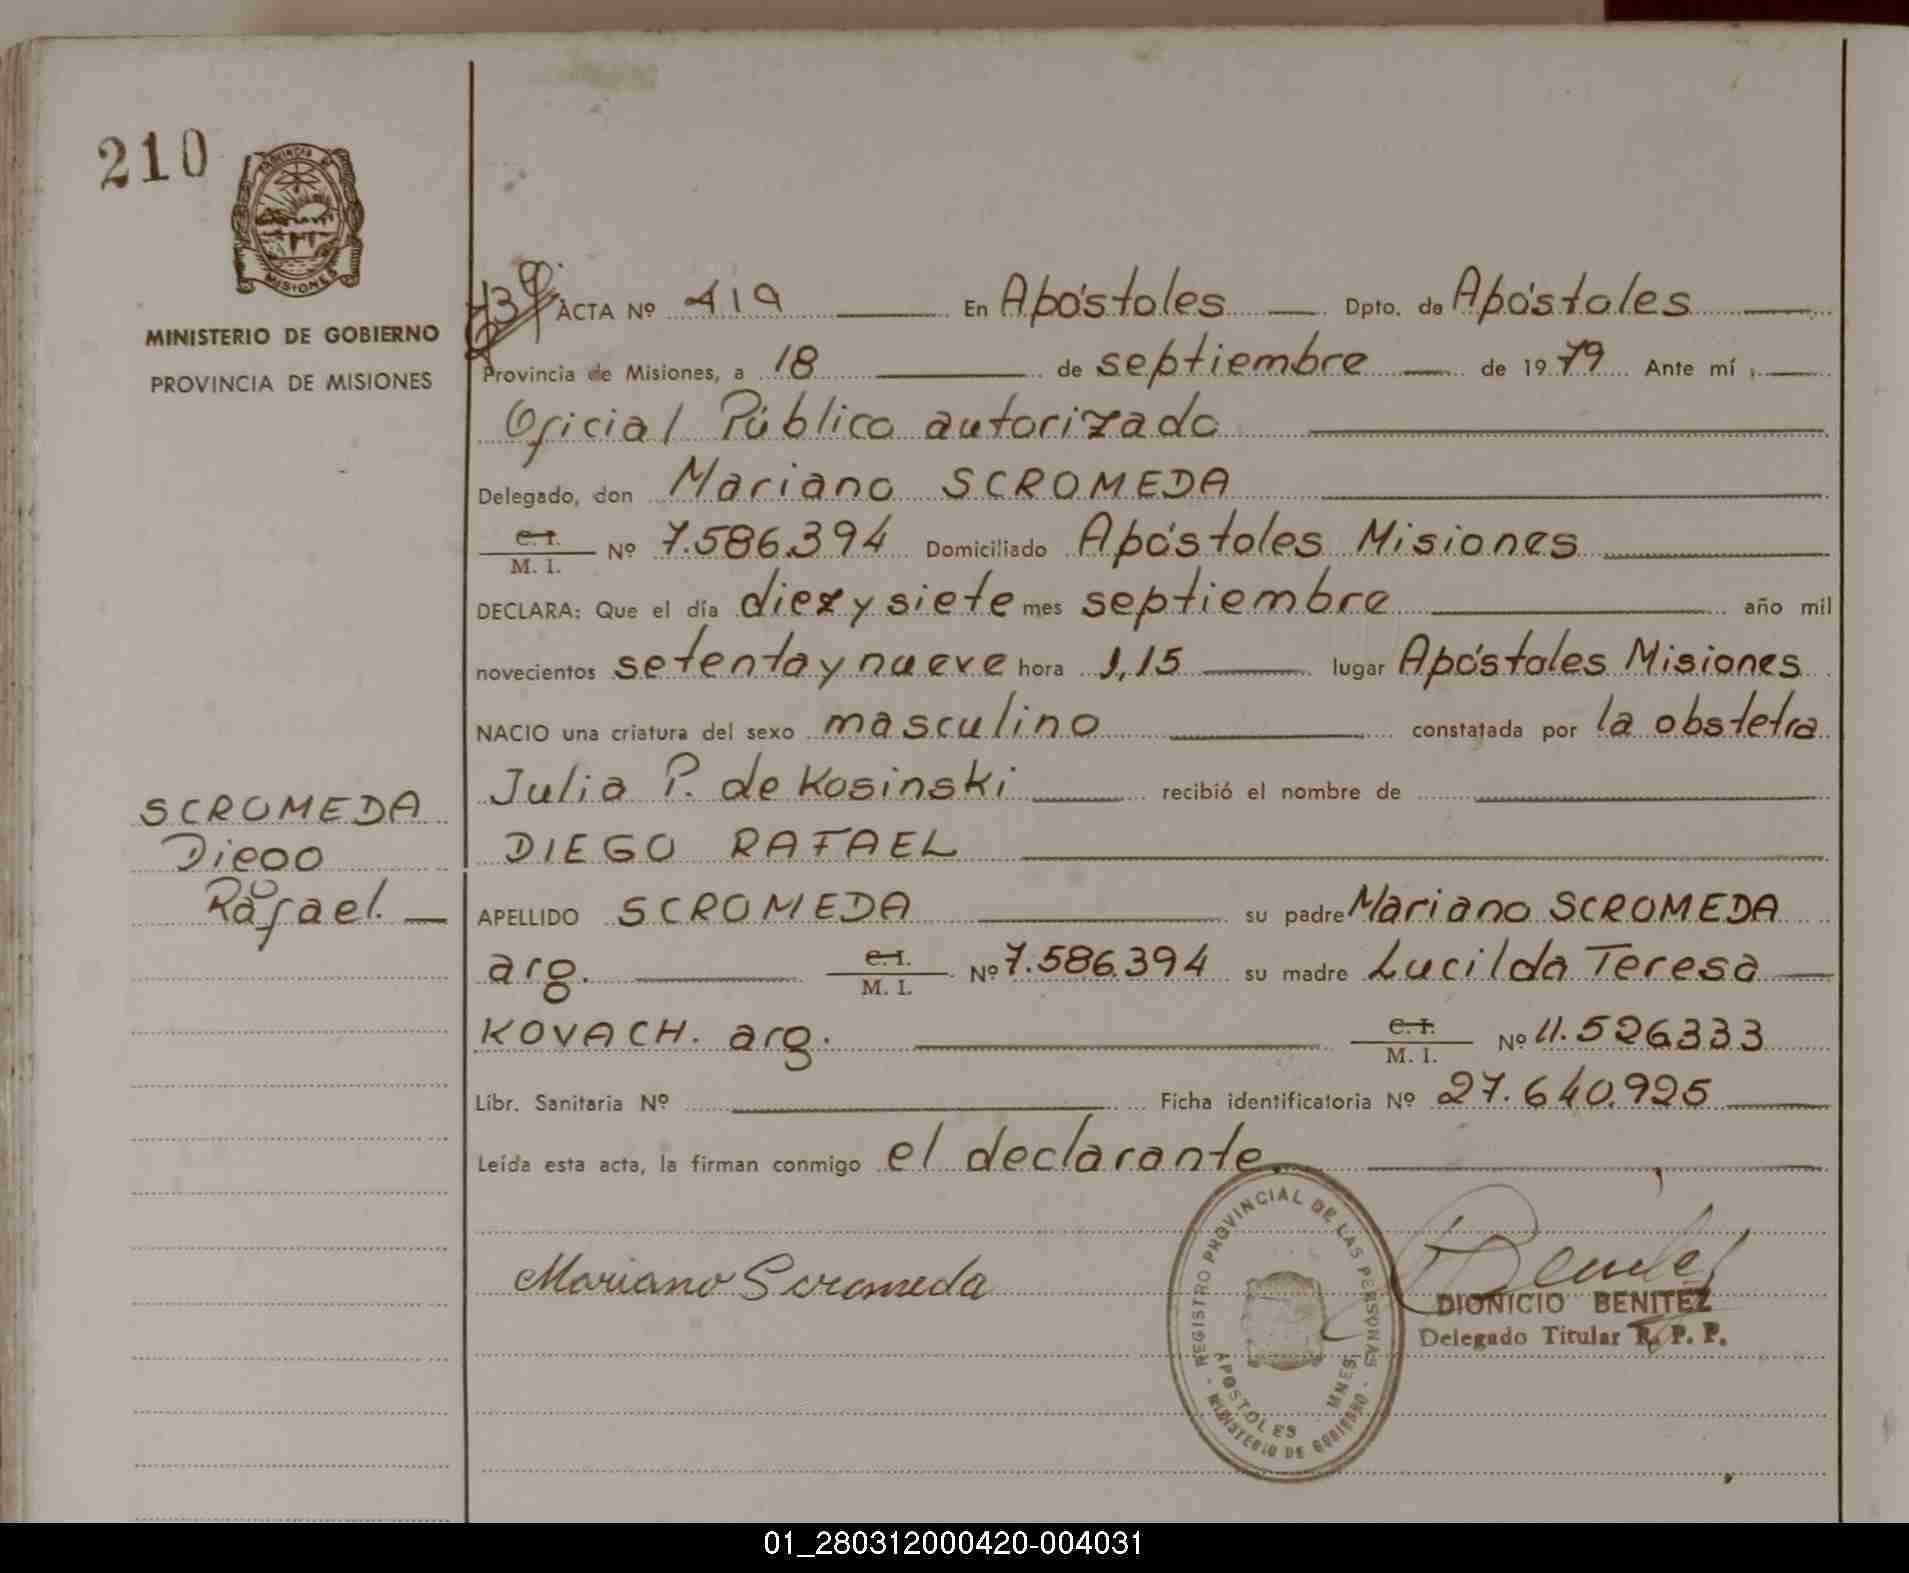 210
PROVINCIA DE
MISIONES
MINISTERIO DE GOBIERNO
PROVINCIA DE MISIONES
ACTA Nº 419 En Apóstoles Dpto. de Apóstoles
Provincia de Misiones, a 18 de septiembre de 1979 Ante mí,
Oficial Público autorizado
Delegado, don Mariano SCROMEDA
C. I.
M. I. Nº 7.586.394 Domiciliado Apóstoles Misiones
DECLARA: Que el día diez y siete mes septiembre año mil
novecientos setenta y nueve hora 1,15 lugar Apóstoles Misiones
NACIO una criatura del sexo masculino constatada por la obstetra
Julia P. de Kosinski recibió el nombre de
DIEGO RAFAEL
SCROMEDA
Diego
Rafael.
APELLIDO SCROMEDA su padre Mariano SCROMEDA
arg. C. I.
M. I. Nº 7.586.394 su madre Lucilda Teresa
KOVACH. arg. C. I.
M. I. Nº 11.526.333
Libr. Sanitaria Nº Ficha identificatoria Nº 27.640.925
Leída esta acta, la firman conmigo el declarante.
Mariano Scromeda
REGISTRO PROVINCIAL DE LAS PERSONAS
APOSTOLES MNES
MINISTERIO DE GOBIERNO
DIONICIO BENITEZ
Delegado Titular R. P. P.
01_280312000420-004031